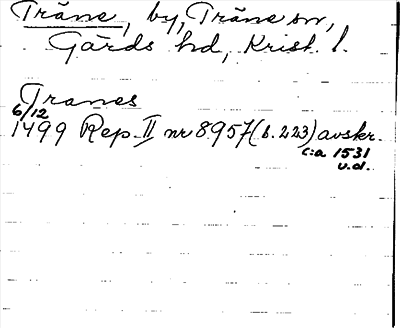 Träne, by, Träne sn,
Gärds hd, Krist. l.
Tranes
6/12
1499 Rep. II nr 8957 (b. 223) avskr.
c:a 1531
u.d.